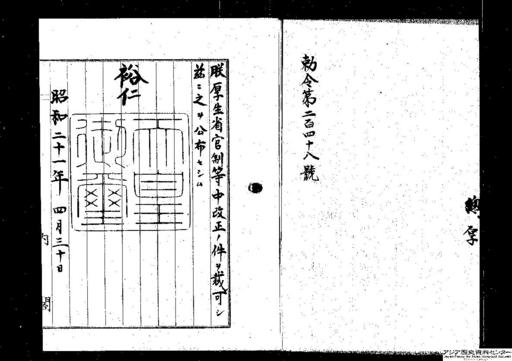 勅令第二百四十八號
朕厚生省官制等中改正ノ件ヲ裁可シ
茲ニ之ヲ公布セシム
裕仁
天皇御璽
昭和二十一年四月三十日
内閣
アジア歴史資料センター